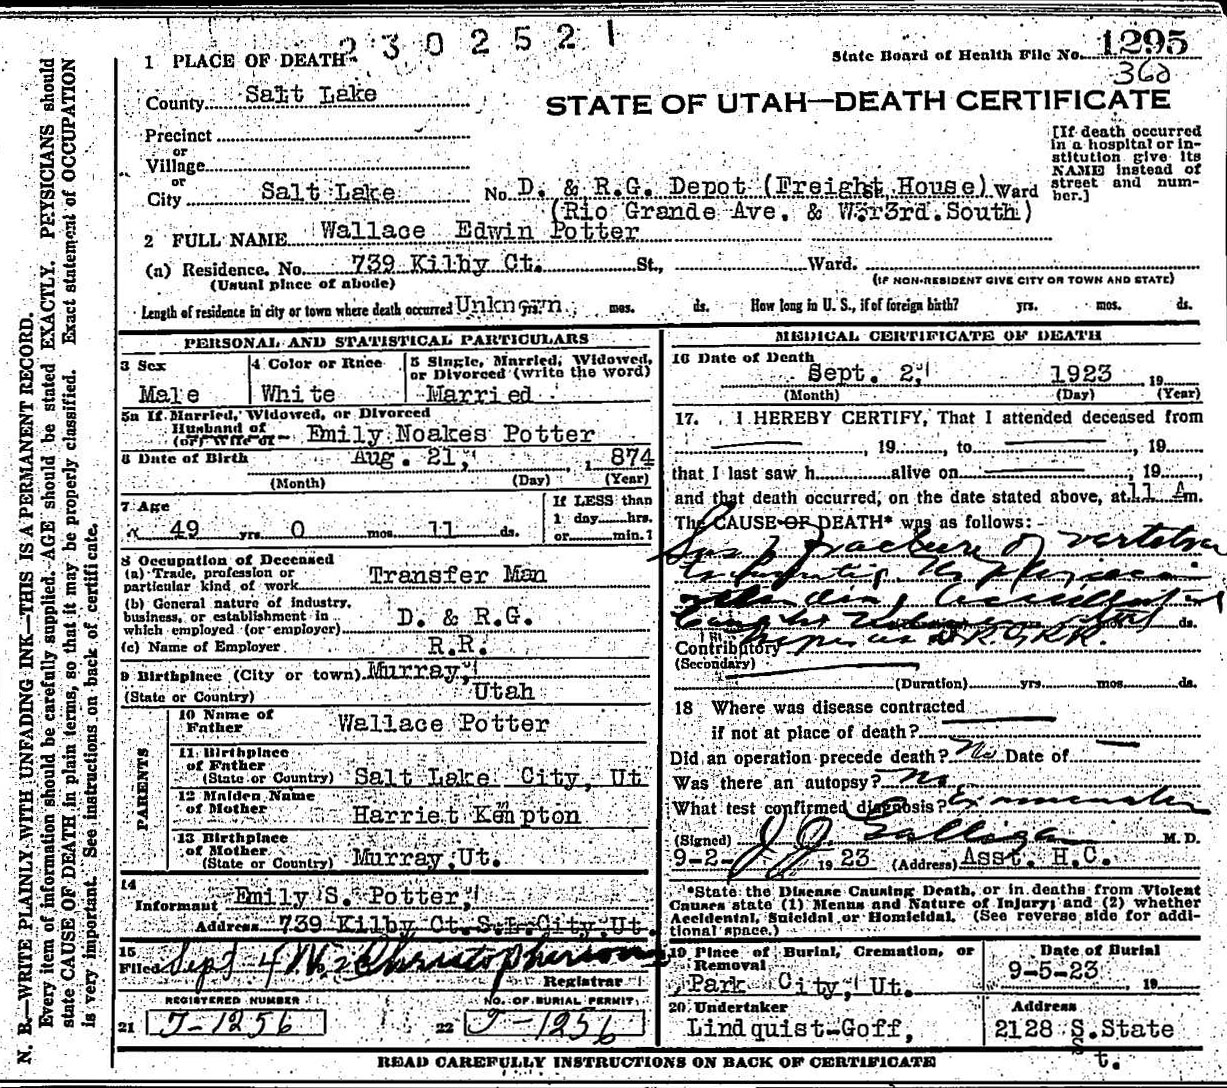 2302521
State Board of Health File No. 1295
360
1 PLACE OF DEATH
County Salt Lake
STATE OF UTAH—DEATH CERTIFICATE
Precinct
or
Village
or
City Salt Lake No. D. & R.G. Depot (Freight House) Ward
(Rio Grande Ave. & W. 3rd. South)
[If death occurred
in a hospital or in-
stitution give its
NAME instead of
street and num-
ber.]
2 FULL NAME Wallace Edwin Potter
(a) Residence. No. 739 Kilby Ct. St., Ward.
(Usual place of abode) (IF NON-RESIDENT GIVE CITY OR TOWN AND STATE)
Length of residence in city or town where death occurred Unknown yrs. mos. ds. How long in U. S., if of foreign birth? yrs. mos. ds.
PERSONAL AND STATISTICAL PARTICULARS
3 Sex
Male
4 Color or Race
White
5 Single, Married, Widowed,
or Divorced (write the word)
Married
5a If Married, Widowed, or Divorced
Husband of
(or) Wife of Emily Noakes Potter
6 Date of Birth Aug. 21, 1874
(Month) (Day) (Year)
7 Age
49 yrs. 0 mos. 11 ds.
If LESS than
1 day hrs.
or min.?
8 Occupation of Deceased
(a) Trade, profession or
particular kind of work Transfer Man
(b) General nature of industry,
business, or establishment in
which employed (or employer) D. & R.G.
(c) Name of Employer R.R.
9 Birthplace (City or town) Murray,
(State or Country) Utah
PARENTS
10 Name of
Father Wallace Potter
11 Birthplace
of Father
(State or Country) Salt Lake City, Ut
12 Maiden Name
of Mother Harriet Kempton
13 Birthplace
of Mother
(State or Country) Murray Ut.
14
Informant Emily S. Potter,
Address 739 Kilby Ct. S.L. City Ut.
15
Filed Sept 4 Christopherson
Registrar
REGISTERED NUMBER
21 J-1256
NO. OF BURIAL PERMIT
22 J-1256
MEDICAL CERTIFICATE OF DEATH
16 Date of Death
Sept. 2, 1923, 19
(Month) (Day) (Year)
17. I HEREBY CERTIFY, That I attended deceased from
, 19 , to , 19
that I last saw h alive on , 19 ,
and that death occurred, on the date stated above, at 11 A m.
The CAUSE OF DEATH* was as follows:
fracture of vertebra
No physician
attending
ds.
Contributory D. R. G. R.R.
(Secondary)
(Duration) yrs. mos. ds.
18 Where was disease contracted
if not at place of death?
Did an operation precede death? No Date of
Was there an autopsy? No
What test confirmed diagnosis? Examination
(Signed) J. J. Galligan M. D.
9-2- 19 23 (Address) Asst. H.C.
*State the Disease Causing Death, or in deaths from Violent
Causes state (1) Means and Nature of Injury; and (2) whether
Accidental, Suicidal or Homicidal. (See reverse side for addi-
tional space.)
19 Place of Burial, Cremation, or
Removal
Park City, Ut.
Date of Burial
9-5-23 , 19
20 Undertaker
Lindquist-Goff,
Address
2128 S. State
t.
READ CAREFULLY INSTRUCTIONS ON BACK OF CERTIFICATE
N. B.—WRITE PLAINLY, WITH UNFADING INK—THIS IS A PERMANENT RECORD.
Every item of information should be carefully supplied. AGE should be stated EXACTLY. PHYSICIANS should
state CAUSE OF DEATH in plain terms, so that it may be properly classified. Exact statement of OCCUPATION
is very important. See instructions on back of certificate.